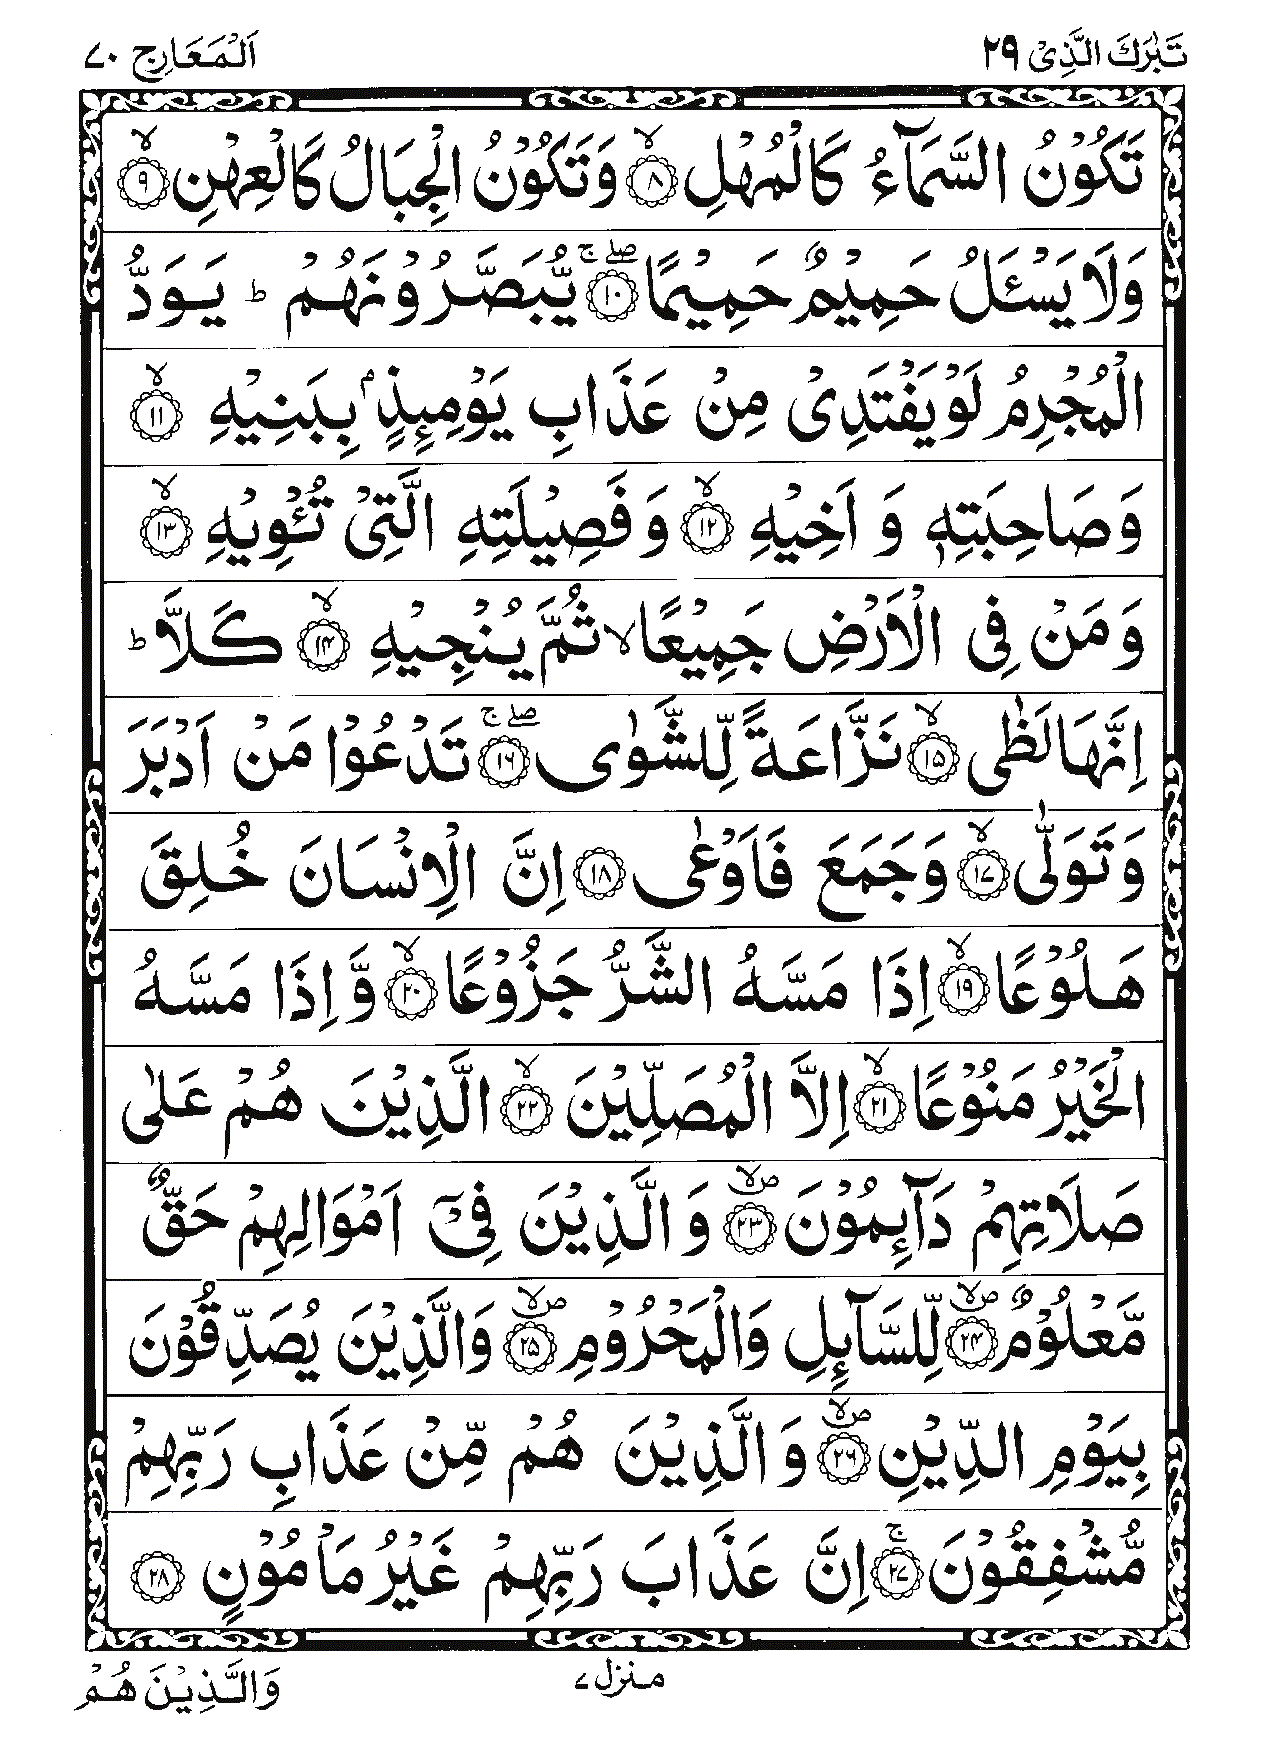 تَبٰرَكَ الَّذِیْ ٢٩
اَلْمَعَارِج ٧٠
تَكُوْنُ السَّمَآءُ كَالْمُهْلِ ۙ﴿٨﴾ وَتَكُوْنُ الْجِبَالُ كَالْعِهْنِ ۙ﴿٩﴾
وَلَا يَسْـَٔلُ حَمِيْمٌ حَمِيْمًا ۚۖ﴿١٠﴾ يُّبَصَّرُوْنَهُمْ ؕ يَوَدُّ
الْمُجْرِمُ لَوْ يَفْتَدِیْ مِنْ عَذَابِ يَوْمِئِذٍۭ بِبَنِيْهِ ۙ﴿١١﴾
وَصَاحِبَتِهٖ وَ اَخِيْهِ ۙ﴿١٢﴾ وَ فَصِيْلَتِهِ الَّتِیْ تُـْٔوِيْهِ ۙ﴿١٣﴾
وَ مَنْ فِی الْاَرْضِ جَمِيْعًا ۙ ثُمَّ يُنْجِيْهِ ۙ﴿١٤﴾ كَلَّا ؕ
اِنَّهَا لَظٰی ۙ﴿١٥﴾ نَزَّاعَةً لِّلشَّوٰی ۚۖ﴿١٦﴾ تَدْعُوْا مَنْ اَدْبَرَ
وَتَوَلّٰی ۙ﴿١٧﴾ وَجَمَعَ فَاَوْعٰی ﴿١٨﴾ اِنَّ الْاِنْسَانَ خُلِقَ
هَلُوْعًا ۙ﴿١٩﴾ اِذَا مَسَّهُ الشَّرُّ جَزُوْعًا ۙ﴿٢٠﴾ وَّ اِذَا مَسَّهُ
الْخَيْرُ مَنُوْعًا ۙ﴿٢١﴾ اِلَّا الْمُصَلِّيْنَ ۙ﴿٢٢﴾ الَّذِيْنَ هُمْ عَلٰی
صَلَاتِهِمْ دَآئِمُوْنَ ۪ۙ﴿٢٣﴾ وَ الَّذِيْنَ فِیْۤ اَمْوَالِهِمْ حَقٌّ
مَّعْلُوْمٌ ۪ۙ﴿٢٤﴾ لِّلسَّآئِلِ وَالْمَحْرُوْمِ ۪ۙ﴿٢٥﴾ وَالَّذِيْنَ يُصَدِّقُوْنَ
بِيَوْمِ الدِّيْنِ ۪ۙ﴿٢٦﴾ وَ الَّذِيْنَ هُمْ مِّنْ عَذَابِ رَبِّهِمْ
مُّشْفِقُوْنَ ۚ﴿٢٧﴾ اِنَّ عَذَابَ رَبِّهِمْ غَيْرُ مَاْمُوْنٍ ﴿٢٨﴾
منزل ٧
وَالَّذِيْنَ هُمْ